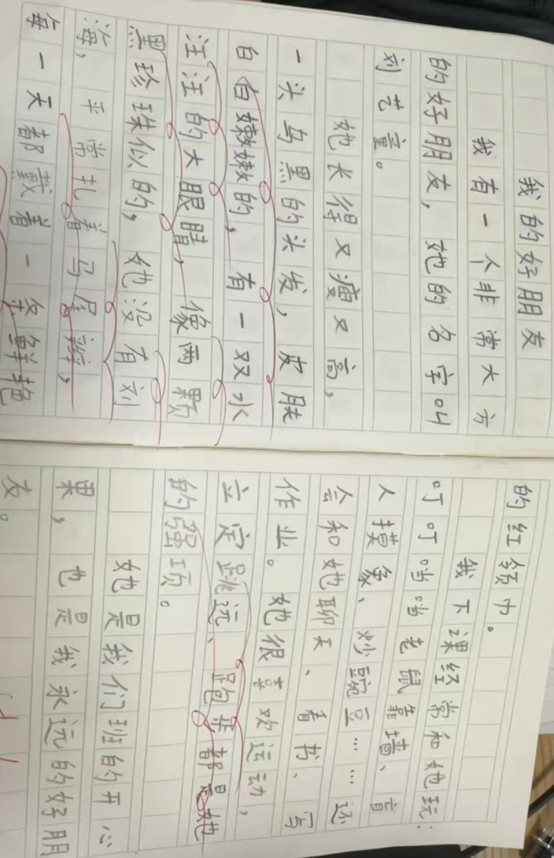 我的好朋友
我有一个非常大方
的好朋友，她的名字叫
刘艺童。
她长得又瘦又高，
一头乌黑的头发，皮肤
白白嫩嫩的，有一双水
汪汪的大眼睛，像两颗
黑珍珠似的，她没有刘
海，平常扎着马尾辫，
每一天都戴着一条鲜艳
的红领巾。
我下课经常和她玩：
叮叮当当老鼠靠墙、盲
人摸象、炒豌豆……还
会和她聊天、看书、写
作业。她很喜欢运动，
立定跳远、跑步都是她
的强项。
她是我们班的开心
果，也是我永远的好朋
友。